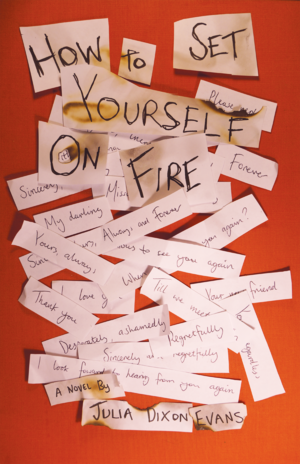 HOW TO SET
YOURSELF
ON FIRE
Please
Forever
Sincerely
My darling
Always, and forever
you again?
Yours, always,
to see you again
I love
Till we meet
Your friend
Thank you
Desperately, ashamedly
Regretfully
Sincerely
regretfully
regardless
I look forward to hearing from you again
A NOVEL BY
JULIA DIXON EVANS